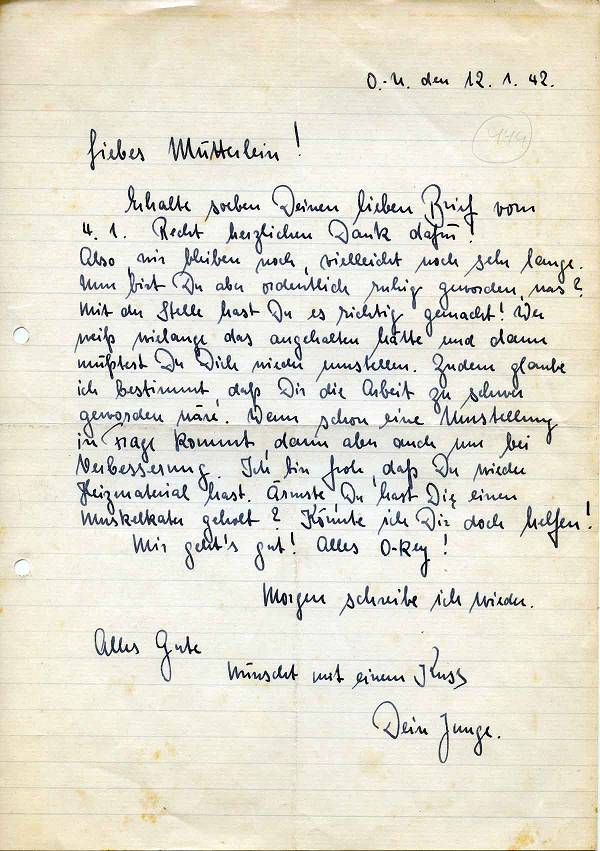 O.-U. den 12. 1. 42.
444
Liebes Mütterlein!
Erhalte soeben Deinen lieben Brief vom
4. 1. Recht herzlichen Dank dafür!
Also wir bleiben noch, vielleicht noch sehr lange.
Nun bist Du aber ordentlich ruhig geworden, was?
Mit der Stelle hast Du es richtig gemacht! Wer
weiß wielange das angehalten hätte und dann
müßtest Du Dich wieder umstellen. Zudem glaube
ich bestimmt, daß Dir die Arbeit zu schwer
geworden wäre. Wenn schon eine Umstellung
in Frage kommt, dann aber auch nur bei
Verbesserung. Ich bin froh, daß Du wieder
Heizmaterial hast. Ärmste, Du hast Dir einen
Muskelkater geholt? Könnte ich Dir doch helfen!
Mir geht's gut! Alles O-Key!
Morgen schreibe ich wieder.
Alles Gute
wünscht mit einem Kuss
Dein Junge.